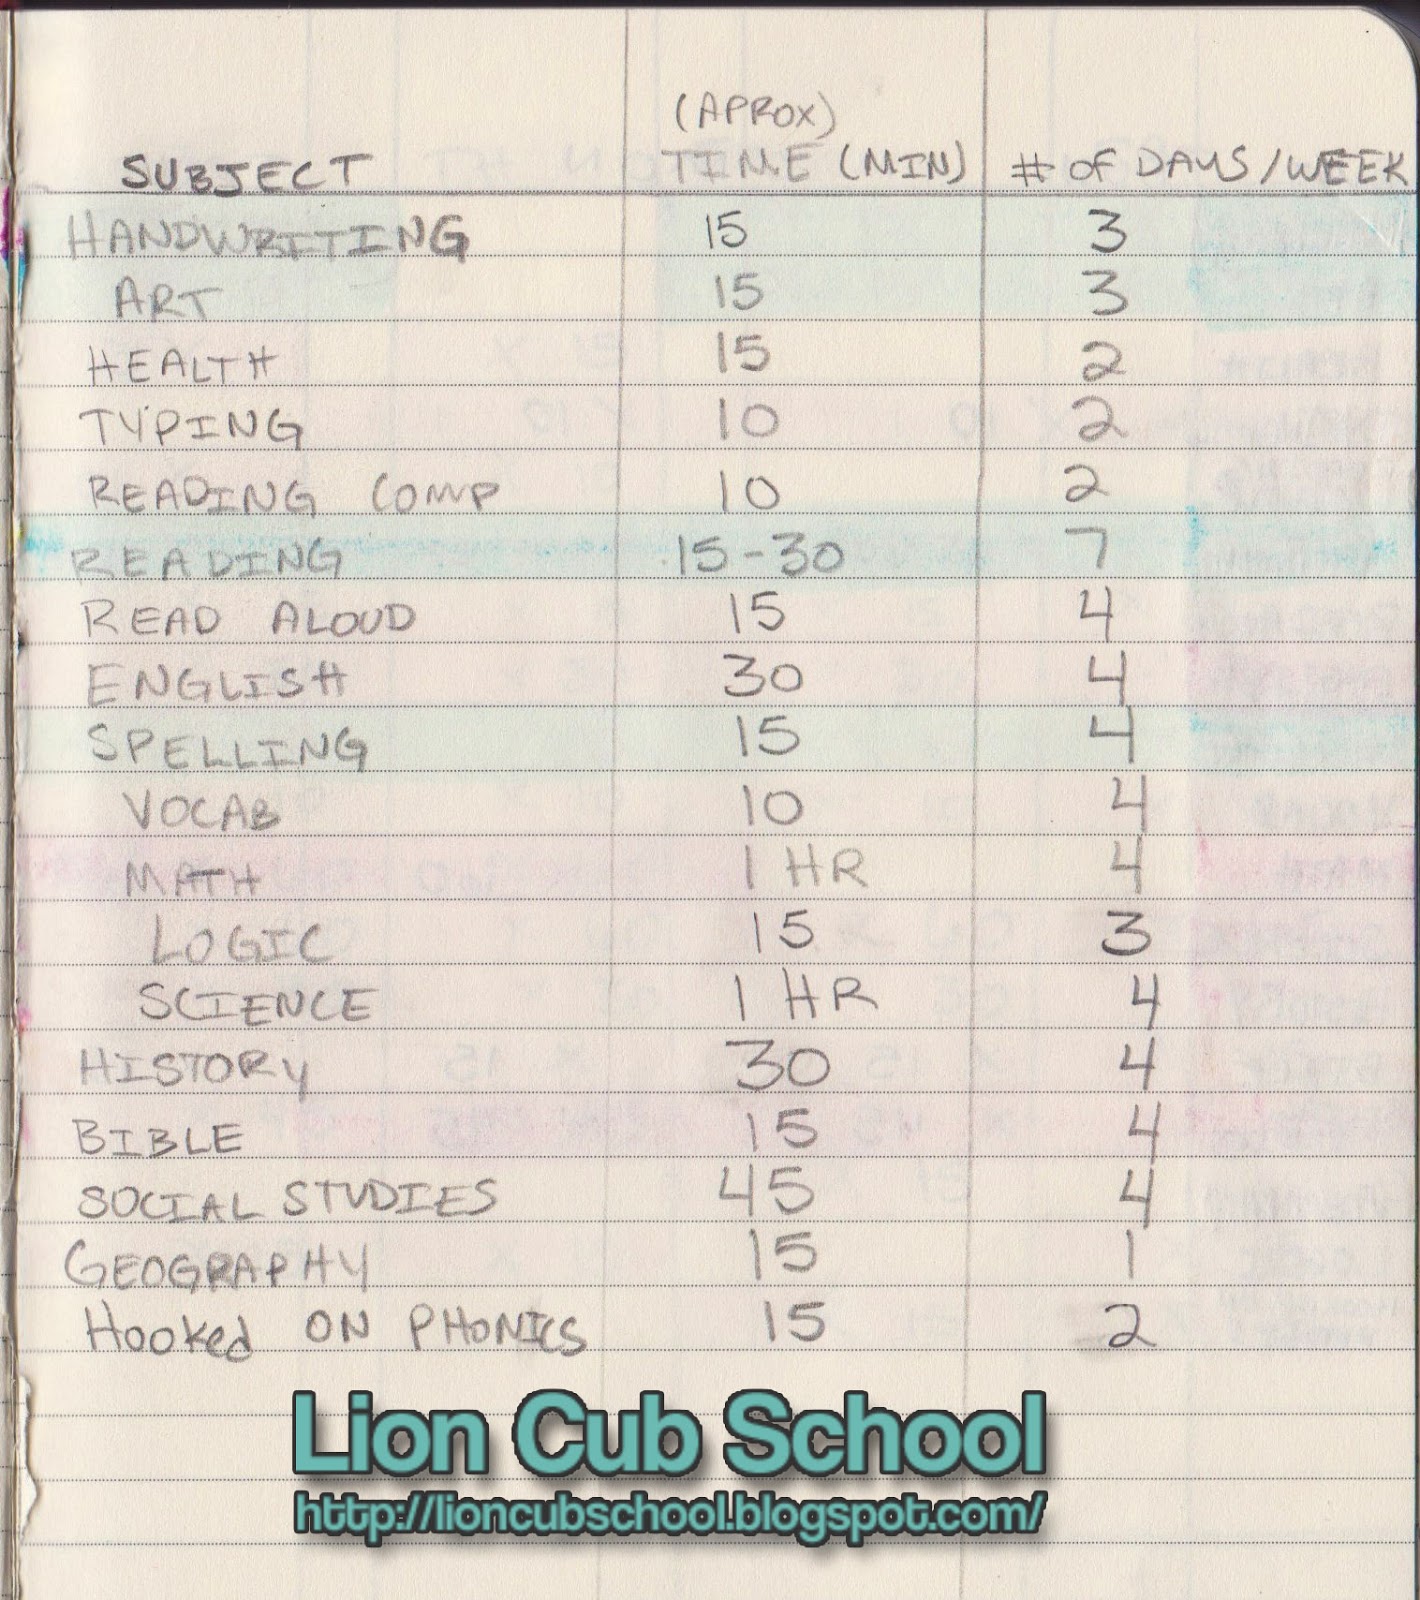 (APROX)
SUBJECT TIME (MIN) # OF DAYS/WEEK
HANDWRITING 15 3
ART 15 3
HEALTH 15 2
TYPING 10 2
READING COMP 10 2
READING 15-30 7
READ ALOUD 15 4
ENGLISH 30 4
SPELLING 15 4
VOCAB 10 4
MATH 1 HR 4
LOGIC 15 3
SCIENCE 1 HR 4
HISTORY 30 4
BIBLE 15 4
SOCIAL STUDIES 45 4
GEOGRAPHY 15 1
Hooked ON PHONICS 15 2
Lion Cub School
http://lioncubschool.blogspot.com/